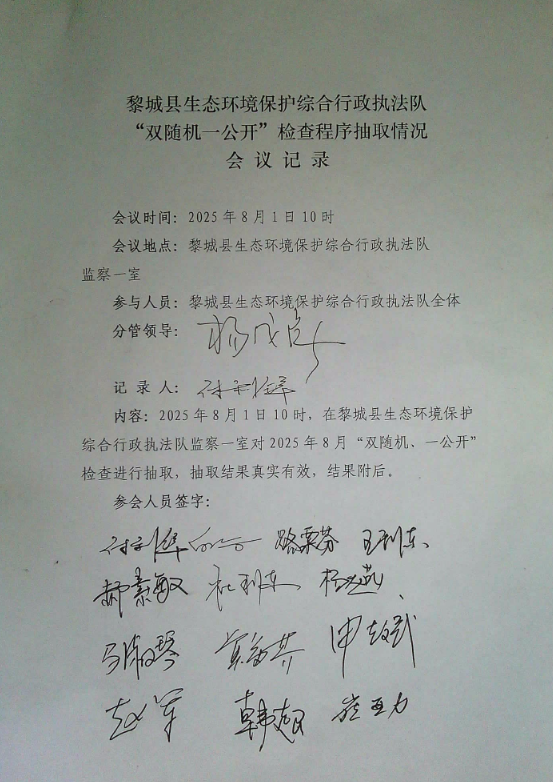 黎城县生态环境保护综合行政执法队
“双随机一公开”检查程序抽取情况
会议记录
会议时间：2025年8月1日10时
会议地点：黎城县生态环境保护综合行政执法队
监察一室
参与人员：黎城县生态环境保护综合行政执法队全体
分管领导：
记录人：
内容：2025年8月1日10时，在黎城县生态环境保护
综合行政执法队监察一室对2025年8月“双随机、一公开”
检查进行抽取，抽取结果真实有效，结果附后。
参会人员签字：
路粟芬 王利东
郝素敏 杜利东
申志斌
赵军 韩超 崔亚力